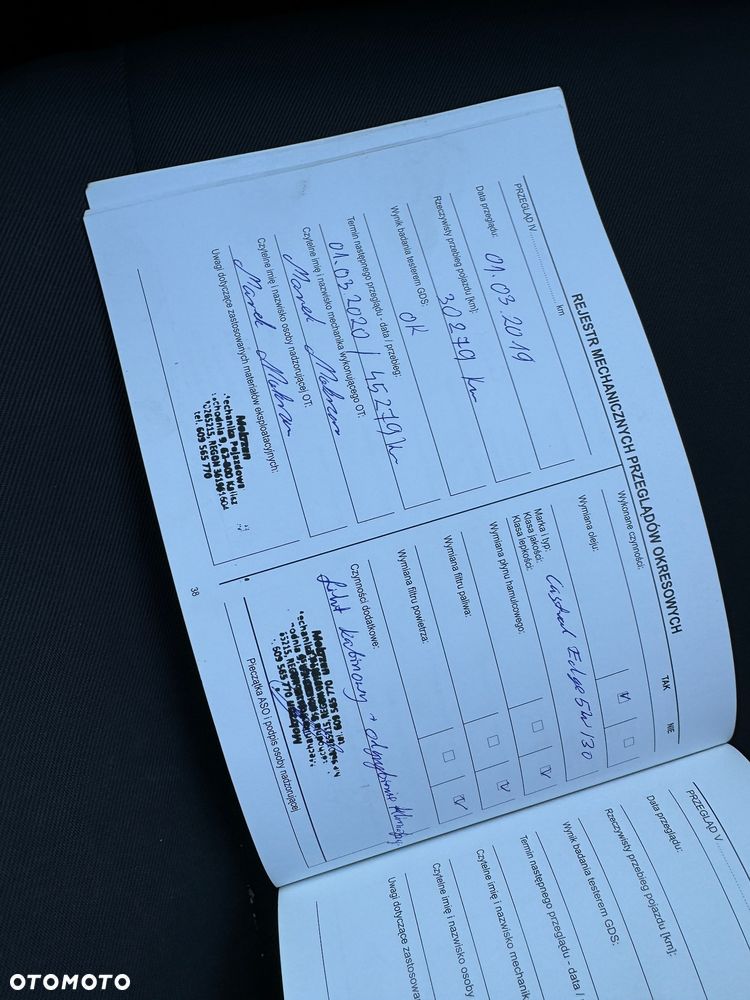 REJESTR MECHANICZNYCH PRZEGLĄDÓW OKRESOWYCH
PRZEGLĄD IV km
Data przeglądu:
01.03.2019
Rzeczywisty przebieg pojazdu [km]:
30279 km
Wynik badania testerem GDS:
OK
Termin następnego przeglądu - data / przebieg:
01.03.2020 / 45279 km
Czytelne imię i nazwisko mechanika wykonującego OT:
Marek
Czytelne imię i nazwisko osoby nadzorującej OT:
Marek
Uwagi dotyczące zastosowanych materiałów eksploatacyjnych:
Mechanika Pojazdowa
62-800 Kalisz
tel. 609 565 770
Wykonane czynności:
TAK NIE
Wymiana oleju:
Marka i typ: Castrol Edge 5W/30
Klasa jakości:
Klasa lepkości:
Wymiana płynu hamulcowego:
Wymiana filtru paliwa:
Wymiana filtru powietrza:
Czynności dodatkowe:
kabinowy +
609 565 770
Pieczątka ASO i podpis osoby nadzorującej
38
PRZEGLĄD V
Data przeglądu:
Rzeczywisty przebieg pojazdu [km]:
Wynik badania testerem GDS:
Termin następnego przeglądu - data /
Czytelne imię i nazwisko mechanik
Czytelne imię i nazwisko osoby
Uwagi dotyczące zastosowa
OTOMOTO